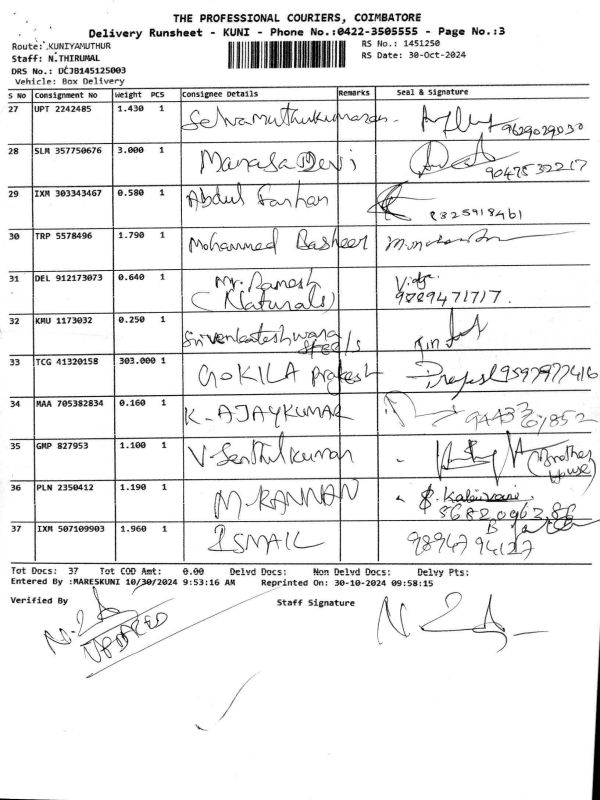 THE PROFESSIONAL COURIERS, COIMBATORE
Delivery Runsheet - KUNI - Phone No.:0422-3505555 - Page No.:3
Route: KUNIYAMUTHUR
RS No.: 1451250
Staff: N.THIRUMAL
RS Date: 30-Oct-2024
DRS No.: DCJB145125003
Vehicle: Box Delivery
S No Consignment No Weight PCS Consignee Details Remarks Seal & Signature
27 UPT 2242485 1.430 1 Selvamuthukumaran. 9629029030
28 SLM 357750676 3.000 1 Manasa Devi 9047532217
29 IXM 303343467 0.580 1 Abdul Farhan 8325918461
30 TRP 5578496 1.790 1 Mohammed Basheer
31 DEL 912173073 0.640 1 Mr. Ramesh
(Naturals) 9789471717.
32 KMU 1173032 0.250 1 Srivenkateshwara
steels
33 TCG 41320158 303.000 1 GOKILA Prakash 9597977416
34 MAA 705382834 0.160 1 K. AJAYKUMAR
35 GMP 827953 1.100 1 V. Senthilkumar (Brother
House)
36 PLN 2350412 1.190 1 M. KANNAN
37 IXM 507109903 1.960 1 ISMAIL 9894794127
Tot Docs: 37 Tot COD Amt: 0.00 Delvd Docs: Non Delvd Docs: Delvy Pts:
Entered By :MARESKUNI 10/30/2024 9:53:16 AM Reprinted On: 30-10-2024 09:58:15
Verified By
Staff Signature
UPDATED